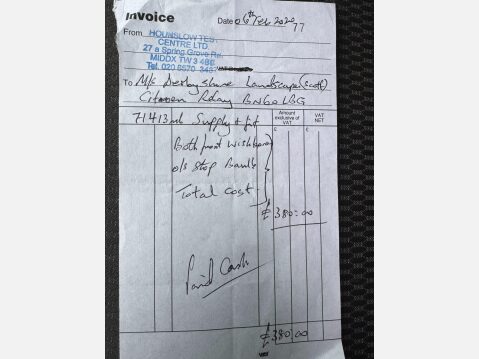 Invoice
Date 06th Feb 2020
77
From HOUNSLOW TES
CENTRE LTD
27 a Spring Grove Rd
MIDDX TW3 4BE
Tel. 020 8570
To M/s Derbyshire Landscape (Scott)
Citroen Relay BN60
71413 ml Supply + fit
Amount exclusive of VAT
VAT NET
£ £
Both front wishbone
o/s Stop
Total Cost
£380:00
Paid Cash
£380:00